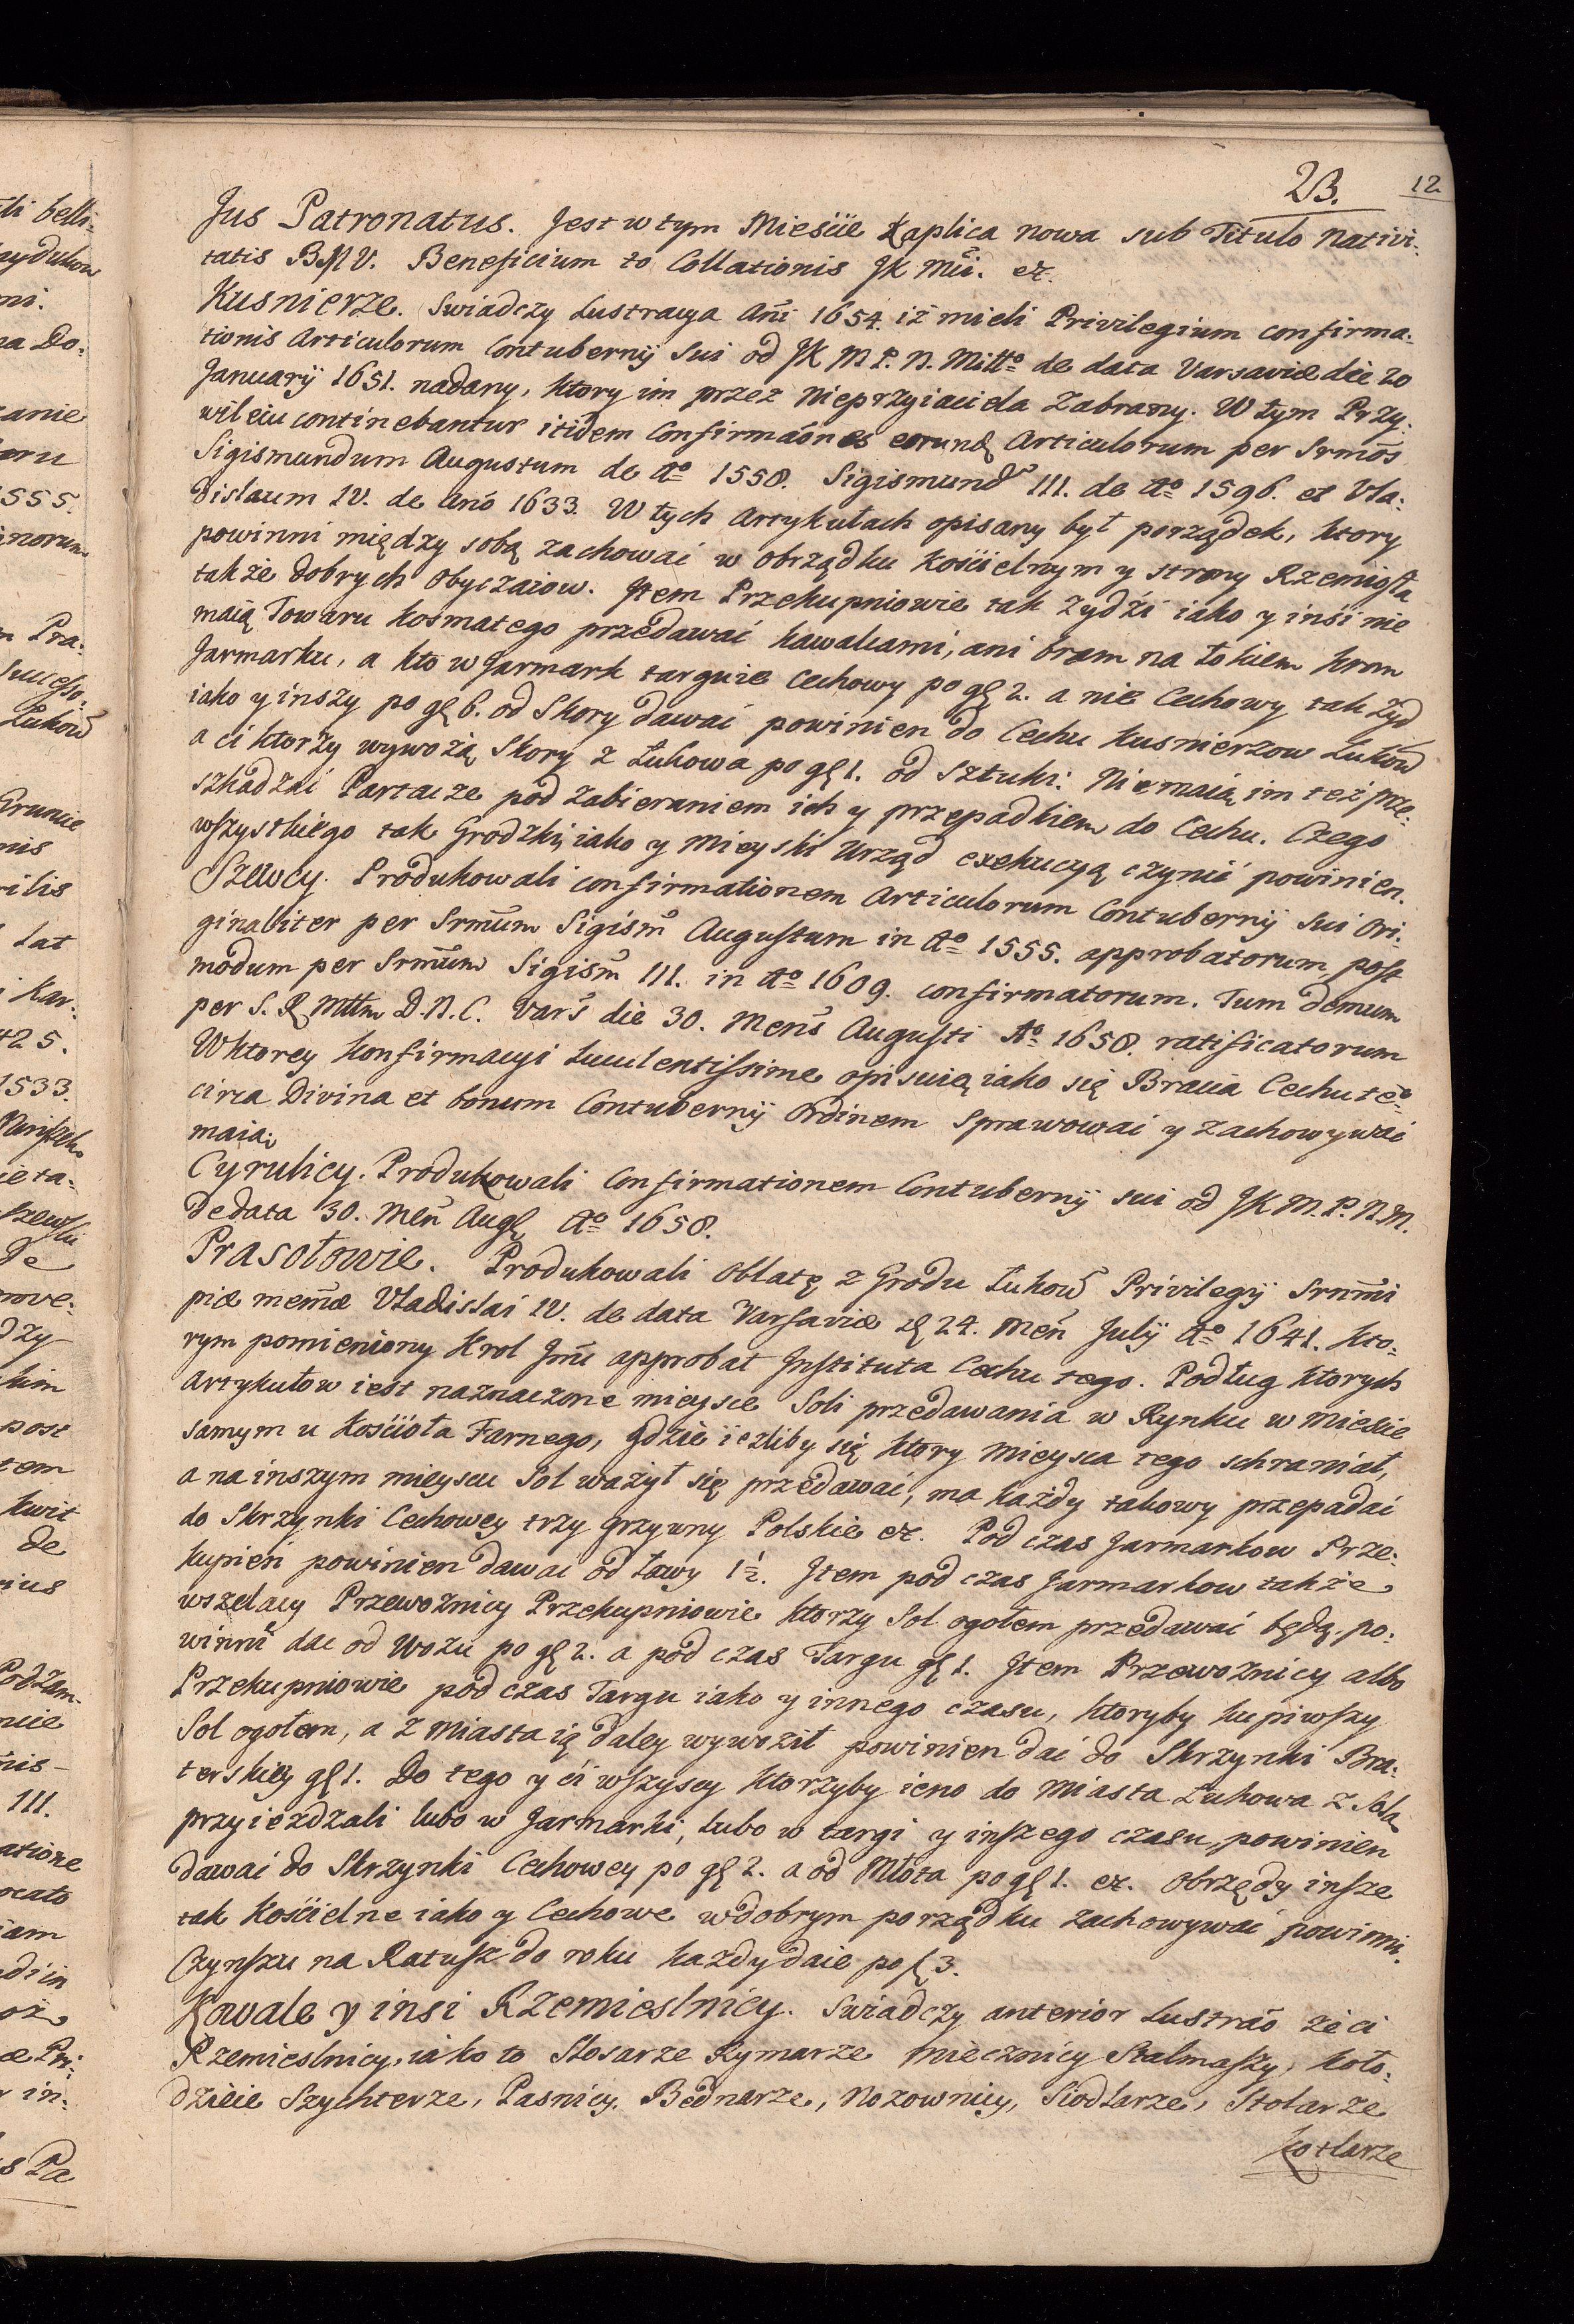 23. 12
Jus Patronatus. Jest w tym Mieście Kaplica nowa sub Titulo Nativi:
tatis BMV. Beneficium to Collationis JK Mci. etc.
Kusnierze. Swiadczy Lustracya Ani 1654. iż mieli Privilegium confirma:
tionis Articulorum Contubernij sui od JK M P. N. Miłło de data Varsaviæ die 20
Januarij 1651. nadany, ktory im przez Nieprzyiaciela Zabrany. W tym Przy:
wileiu continebantur itidem Confirmãones eorund Articulorum per Srmos
Sigismundum Augustum de Ao 1558. Sigismund III. de Ao 1596. et Vla:
dislaum IV. de Ano 1633. W tych Artykułach opisany był porządek, ktory
powinni między sobą zachować w obrządku Kościelnym y strony Rzemiosła
także dobrych Obyczaiow. Jtem Przekupniowie tak Zydźi iako y inśi nie
maią Towaru Kosmatego przedawać kawałcami, ani bram na Łokiem krom
Jarmarku, a kto w Jarmark targuie Cechowy po gę 2. a nie Cechowy tak Zyd
iako y inszy po gę 6. od Skory dawać powinien do Cechu Kusnierzow Łukow
a ci ktorzy wywożą Skory z Łukowa po gę 1. od Sztuki. Nie maią im też prze:
szkadzać Partacze pod zabieraniem ich y przepadkiem do Cechu. Czego
wszystkiego tak Grodzki iako y Mieyski Urząd exekucyą czynić powinien.
Szewcy. Produkowali confirmationem Articulorum Contubernij sui Ori:
ginaliter per Srmum Sigism Augustum in Ao 1555. approbatorum, post
modum per Srmum Sigism III. in Ao 1609. confirmatorum. Tum demum
per S. R Mttm D. N. C. Vars die 30. Mens Augusti Ao 1658. ratificatorum
W ktorey Konfirmacyi Luculentissime opisuie iako się Bracia Cechu teo
circa Divina et bonum Contubernij Ordinem sprawować y zachowywać
maią.
Cyrulicy. Produkowali Confirmationem Contubernij sui od JK M. P. N. M.
de data 30. Men Aug Ao 1658.
Prasołowie. Produkowali Oblatę z Grodu Łukow Privilegij Srmi
piæ memæ Vladislai IV. de data Varsaviæ d 24. Men Julij Ao 1641. kto:
rym pomieniony Krol Jmć approbat Instituta Cechu tego. Podług ktorych
Artykułow iest naznaczone mieysce Soli przedawania w Rynku w Mieście
samym u Kościoła Farnego, gdzie ieżliby się ktory mieysca tego schraniał,
a na inszym mieyscu Sol ważył się przedawać, ma każdy takowy przepadać
do Skrzynki Cechowey trzy grzywny Polskie etc. Pod czas Jarmarkow Prze:
kupień powinien dawać od Ławy 1½. Jtem pod czas Jarmarkow także
wszelacy Przewoźnicy Przekupniowie ktorzy Sol ogołem przedawać będą, po:
winni dać od Wozu po gę 2. a pod czas Targu gę 1. Jtem Przewoznicy albo
Przekupniowie pod czas Targu iako y innego czasu, ktoryby kupiwszy
Sol ogołem, a z Miasta ią daley wywoził powinien dać do Skrzynki Bra:
terskiey gę 1. Do tego y ci wszyscy ktorzyby ieno do Miasta Łukowa z Solą
przyieżdzali lubo w Jarmarki, lubo w targi y inszego czasu, powinien
dawać do Skrzynki Cechowey po gę 2. a od Młota po gę 1. etc. Obrzędy insze
tak Kościelne iako y Cechowe w dobrym porządku zachowywać powinni.
Czynszu na Ratusz do roku każdy daie po f 3.
Kowale y insi Rzemieslnicy. Swiadczy anterior Lustrao że ci
Rzemieslnicy, iako to Slosarze Rymarze Miecznicy Stalmaszy, Koło:
dzieie Szychterze, Pasnicy. Bednarze, Nozownicy, Siodlarze, Stolarze
Kotlarze